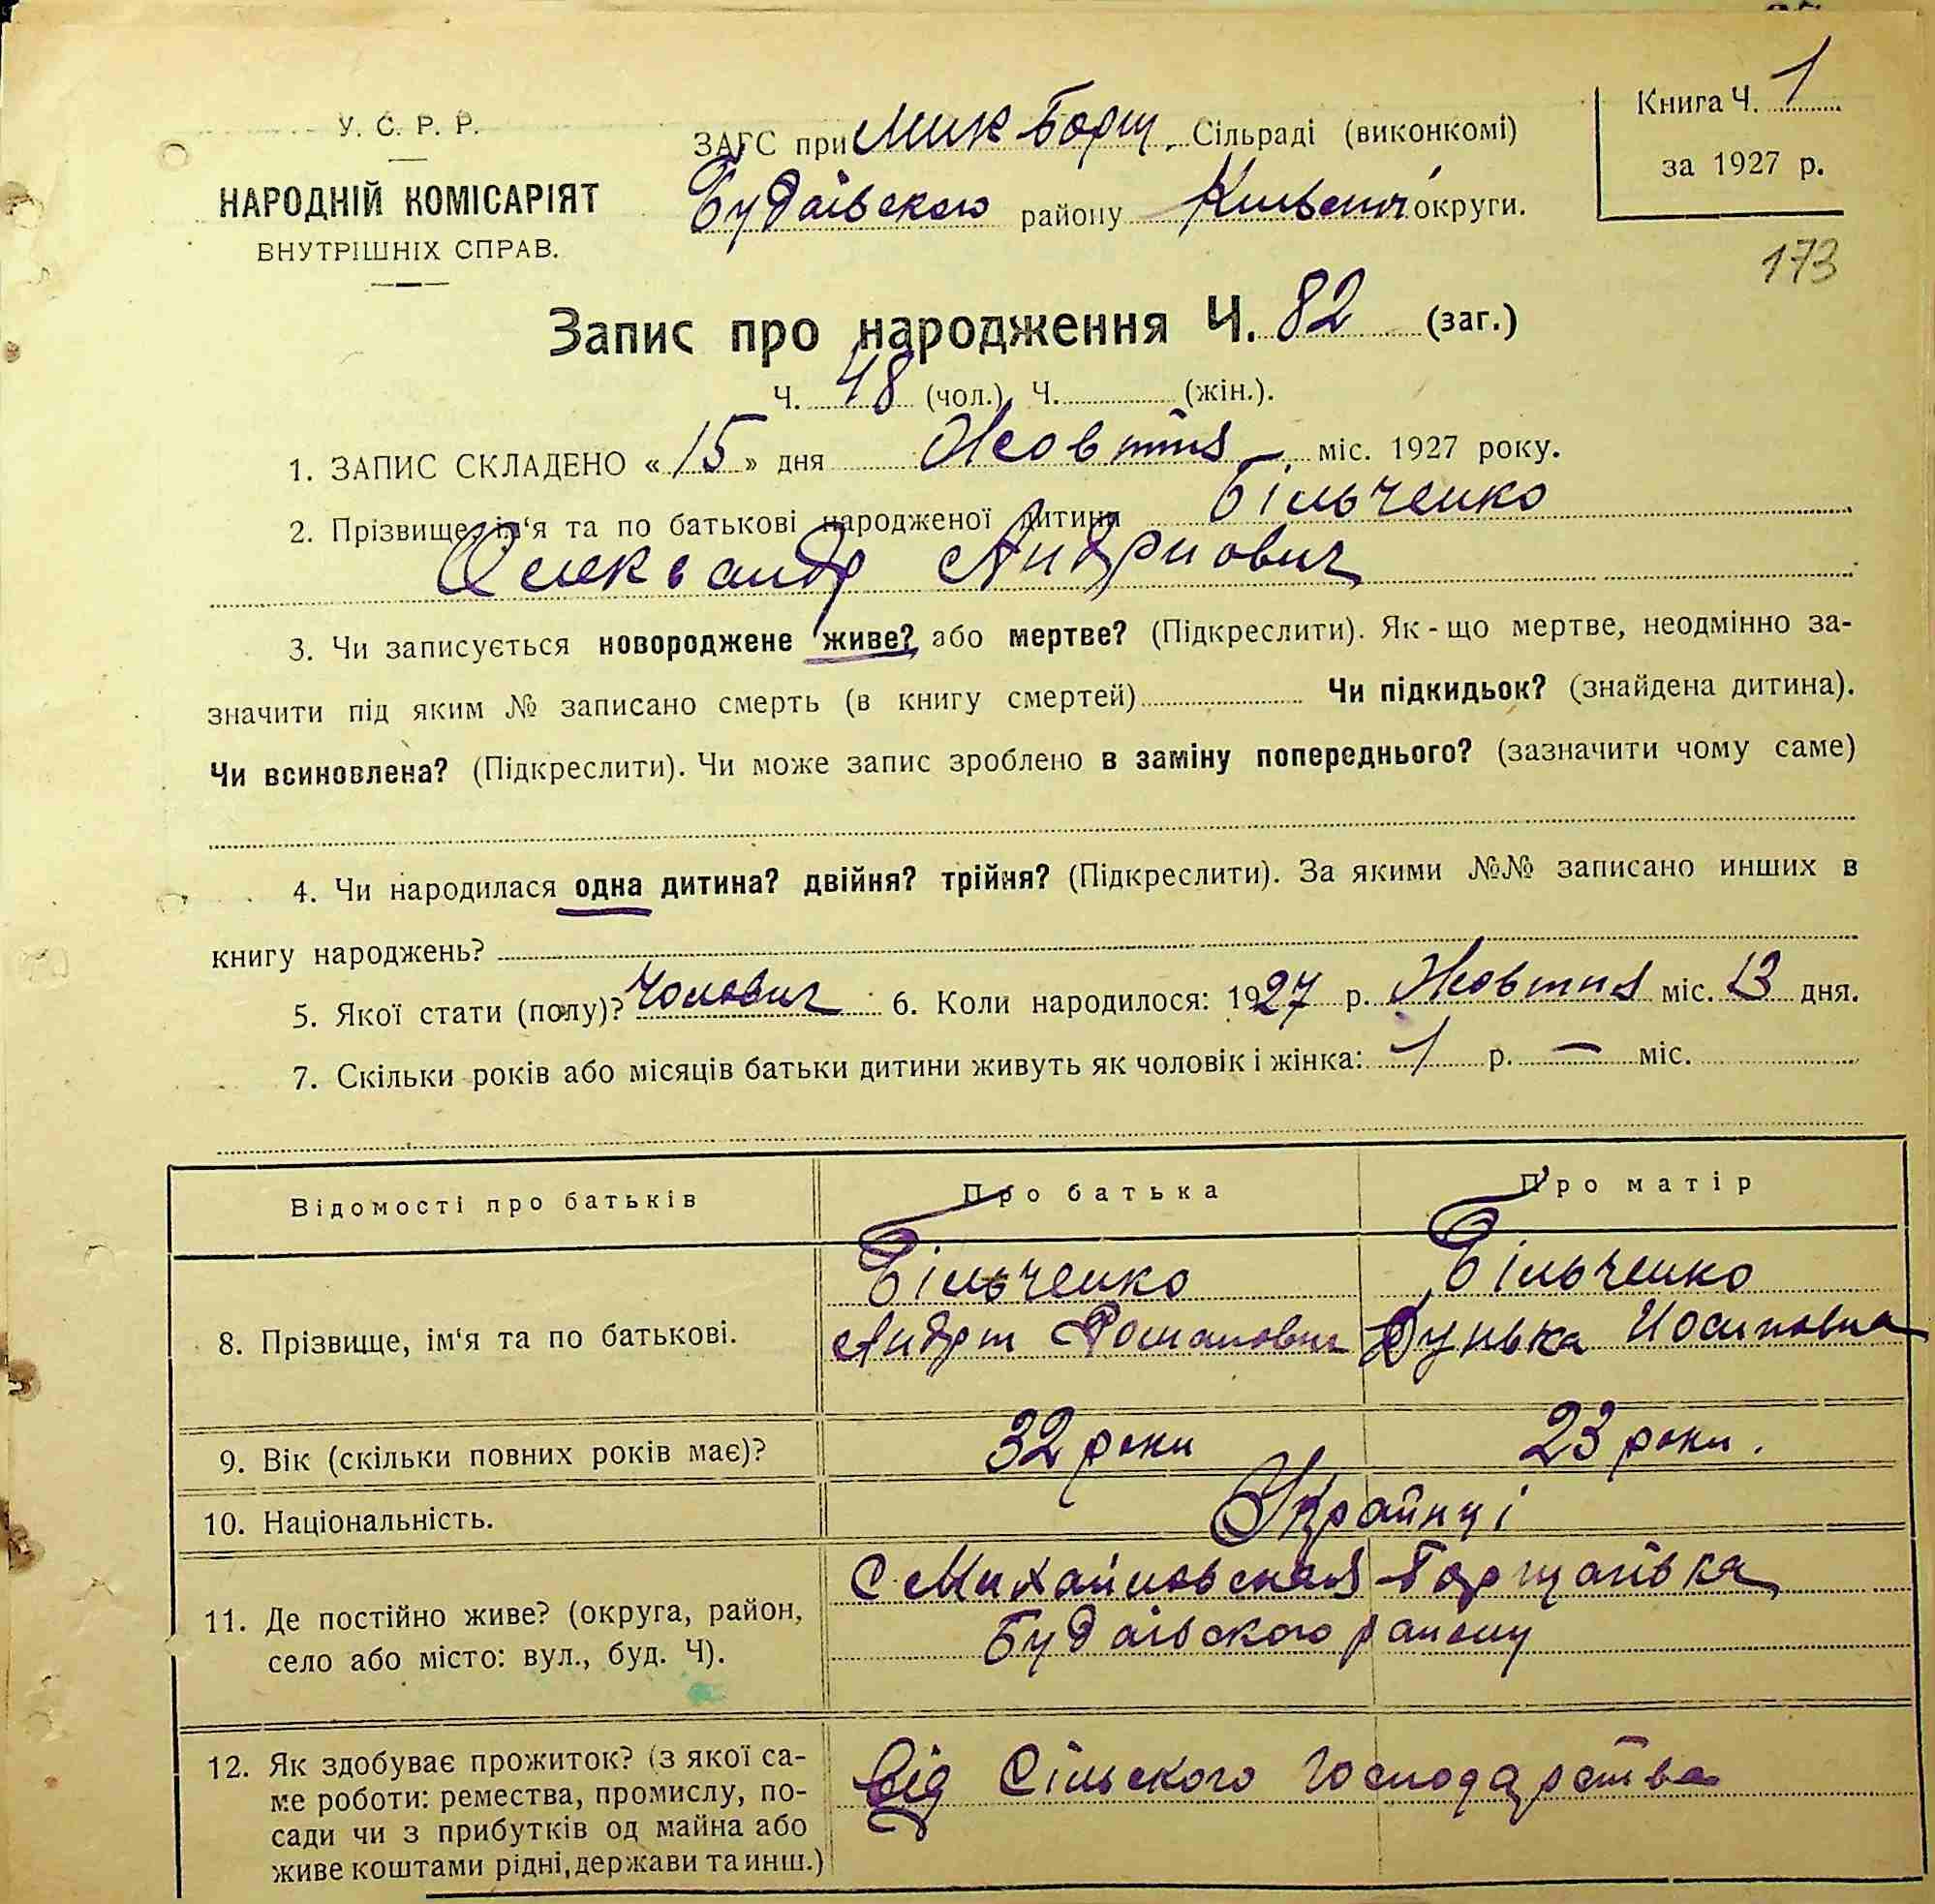 У. С. Р. Р.
НАРОДНІЙ КОМІСАРІЯТ
ВНУТРІШНІХ СПРАВ.
ЗАГС при Мик Борщ. Сільраді (виконкомі)
Будаівского району Київськ округи.
Книга Ч. 1
за 1927 р.
173
Запис про народження Ч. 82 (заг.)
Ч. 48 (чол.) Ч. (жін.).
1. ЗАПИС СКЛАДЕНО « 15 » дня Жовтня міс. 1927 року.
2. Прізвище, ім‘я та по батькові народженої дитини Більченко
Олександр Андріович
3. Чи записується новороджене живе? або мертве? (Підкреслити). Як-що мертве, неодмінно за-
значити під яким № записано смерть (в книгу смертей) Чи підкидьок? (знайдена дитина).
Чи всиновлена? (Підкреслити). Чи може запис зроблено в заміну попереднього? (зазначити чому саме)
4. Чи народилася одна дитина? двійня? трійня? (Підкреслити). За якими №№ записано инших в
книгу народжень?
5. Якої стати (полу)? Чоловіч 6. Коли народилося: 1927 р. Жовтня міс. 13 дня.
7. Скільки років або місяців батьки дитини живуть як чоловік і жінка: 1 р. — міс.
Відомості про батьків Про батька Про матір
8. Прізвище, ім‘я та по батькові.
Більченко Більченко
Андрій Романович Дунька Иосиповна
9. Вік (скільки повних років має)? 32 роки 23 роки.
10. Національність. Україінці
11. Де постійно живе? (округа, район,
село або місто: вул., буд. Ч).
С Михайловская Борщагівка
Будаівского району
12. Як здобуває прожиток? (з якої са-
ме роботи: ремества, промислу, по-
сади чи з прибутків од майна або
живе коштами рідні, держави та инш.)
Від Сільского Господарства